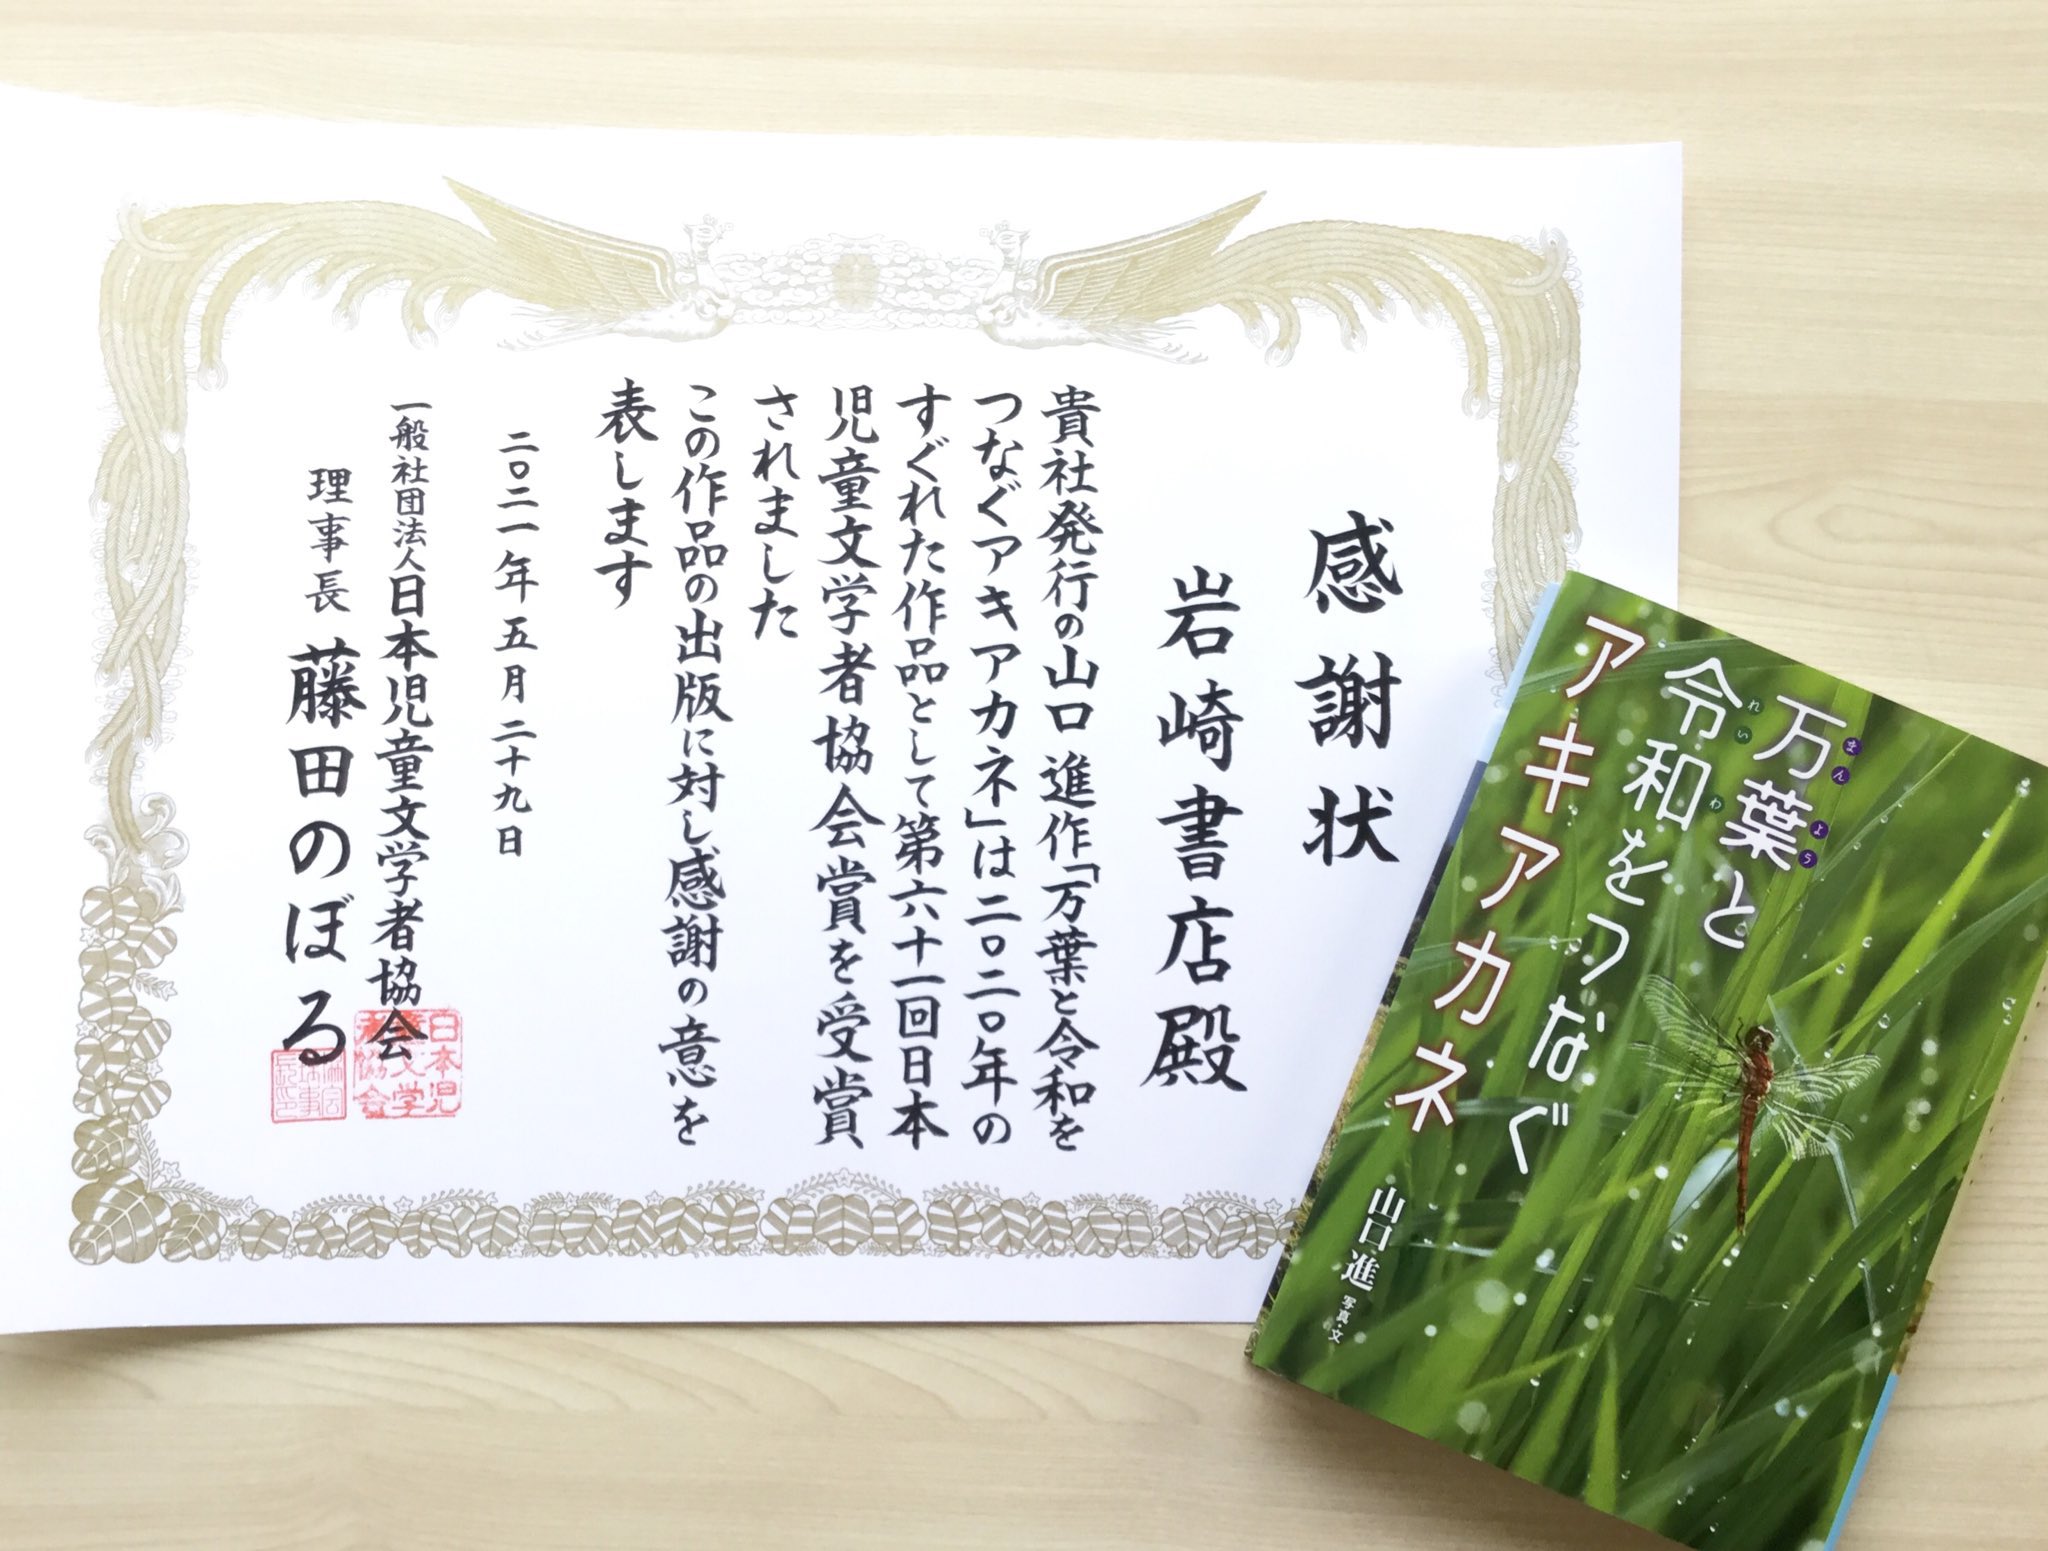 感謝状
岩崎書店殿
貴社発行の山口 進作「万葉と令和を
つなぐアキアカネ」は二〇二〇年の
すぐれた作品として第六十一回日本
児童文学者協会賞を受賞
されました
この作品の出版に対し感謝の意を
表します
二〇二一年五月二十九日
一般社団法人日本児童文学者協会
理事長 藤田のぼる
日本児
童文学
者協会
万葉と
まんよう
令和をつなぐ
れいわ
アキアカネ
山口進 写真・文